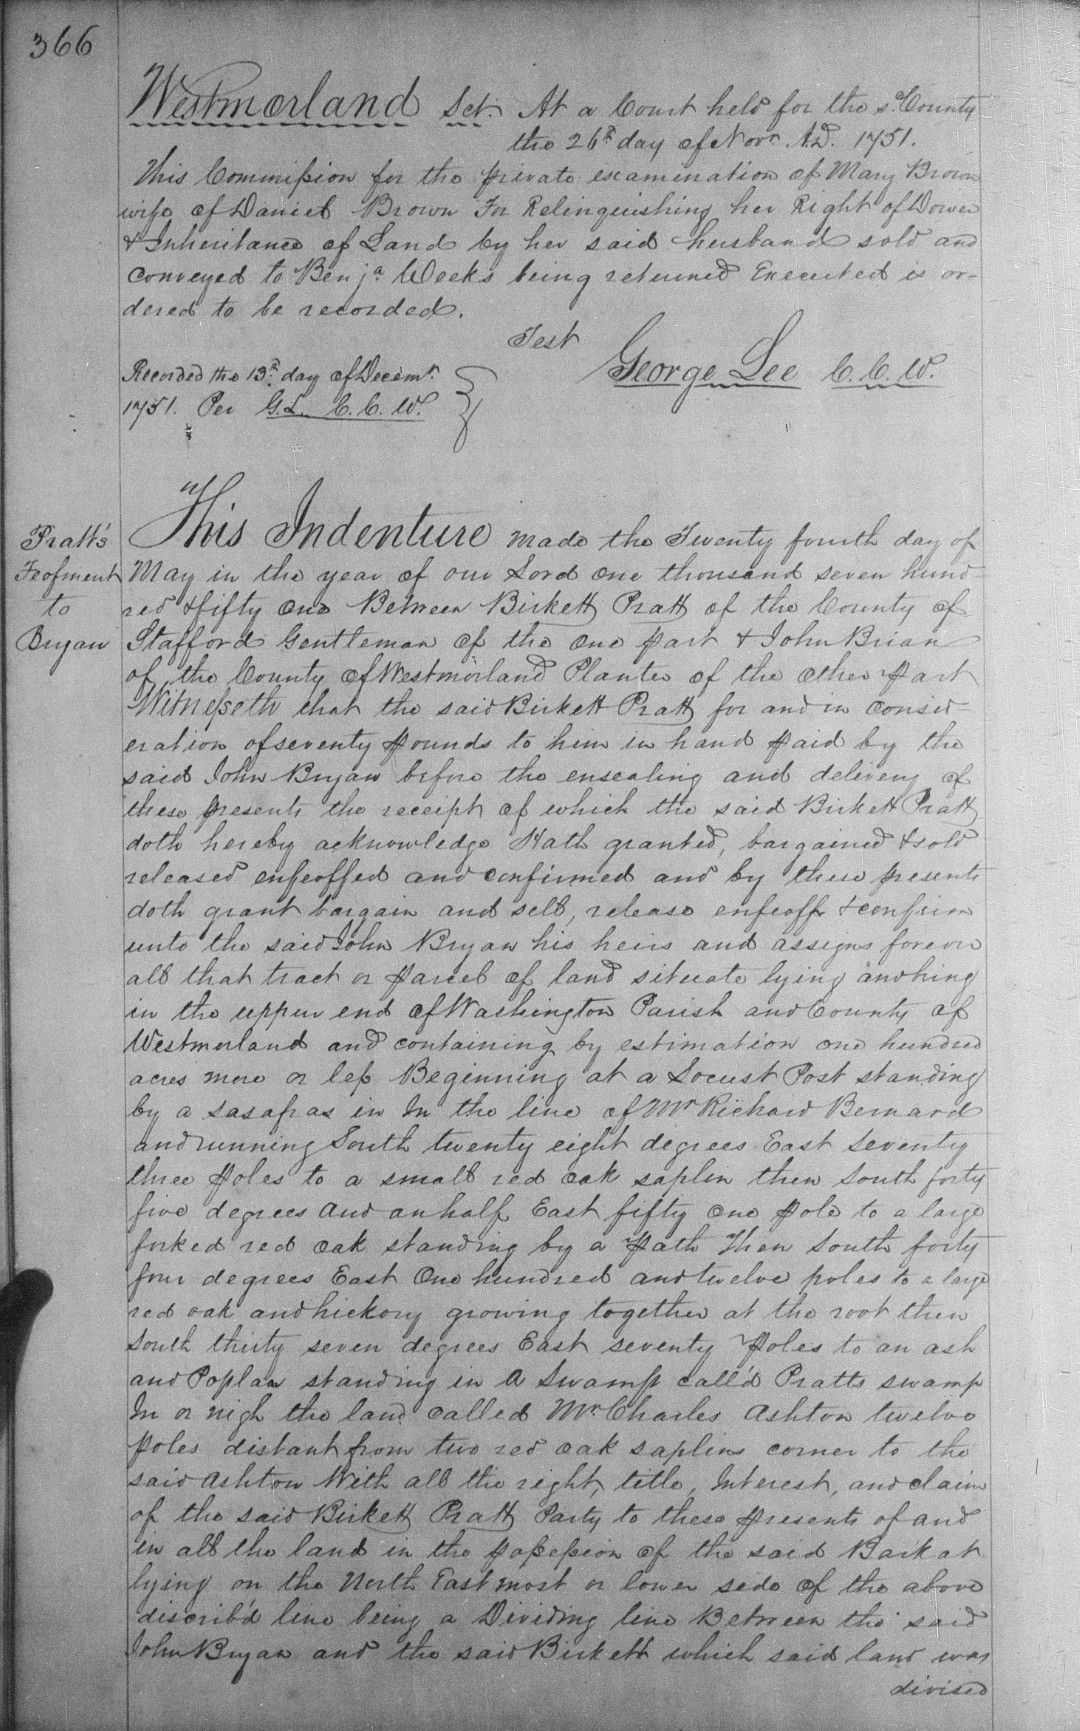 366
Westmorland Sct. At a Court held for the sd. County
the 26th day of Novr. A.D. 1751.
This Commission for the private examination of Mary Brown
wife of Daniel Brown For Relinquishing her Right of Dower
& Inheritance of Land by her said husband sold and
conveyed to Benja. Weeks being returned Executed is or-
dered to be recorded.
Test
George Lee C.C.W.
Recorded the 13th. day of Decemr.
1751. Per G.L. C.C.W.
Pratt's
Feofment
to
Bryan
This Indenture made the Twenty fourth day of
May in the year of our Lord one thousand seven hund=
red & fifty one Between Birkett Pratt of the County of
Stafford Gentleman of the one part & John Brian
of the County of Westmorland Planter of the other part
Witnesseth that the said Birkett Pratt for and in consid=
eration of seventy pounds to him in hand paid by the
said John Bryan before the ensealing and delivery of
these presents the receipt of which the said Birkett Pratt
doth hereby acknowledge Hath granted, bargained & sold
released enfeoffed and confirmed and by these presents
doth grant bargain and sell, release enfeoff & confirm
unto the said John Bryan his heirs and assigns forever
all that tract or parcel of land situate lying and being
in the upper end of Washington Parish and County of
Westmorland and containing by estimation one hundred
acres more or less Beginning at a Locust Post standing
by a sasafras in In the line of Mr Richard Bernard
and running South twenty eight degrees East Seventy
three poles to a small red oak saplin then South forty
five degrees and an half East fifty one pole to a large
forked red oak standing by a path Then South forty
four degrees East One hundred and twelve poles to a large
red oak and hickory growing together at the root then
South thirty seven degrees East seventy poles to an ash
and Poplar standing in a Swamp call'd Pratts swamp
In or nigh the land called Mr Charles Ashton twelve
poles distant from two red oak saplins corner to the
said Ashton With all the right, title, Interest, and claim
of the said Birkett Pratt Party to these presents of and
in all the land in the possession of the said Barkat
lying on the North Eastmost or lower side of the above
discrib'd line being a Dividing line Between the said
John Bryan and the said Birkett which said land was
divised